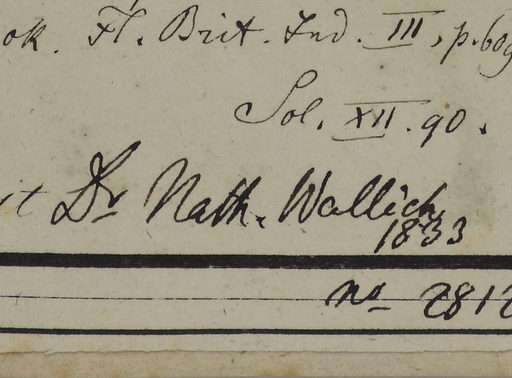 ok. Fl. Brit. Ind. III, p. 609
Sol. XII. 90.
it Dr Nath. Wallich
1833
no 2812